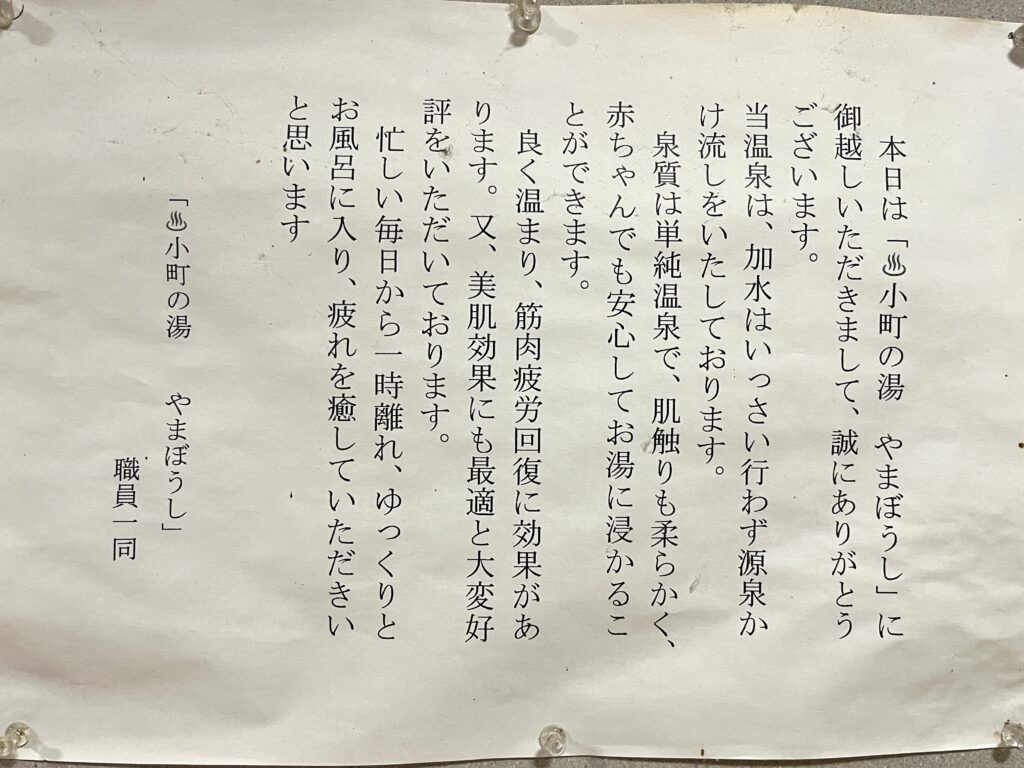 本日は「♨小町の湯　やまぼうし」に
御越しいただきまして、誠にありがとう
ございます。
当温泉は、加水はいっさい行わず源泉か
け流しをいたしております。
泉質は単純温泉で、肌触りも柔らかく、
赤ちゃんでも安心してお湯に浸かるこ
とができます。
良く温まり、筋肉疲労回復に効果があ
ります。又、美肌効果にも最適と大変好
評をいただいております。
忙しい毎日から一時離れ、ゆっくりと
お風呂に入り、疲れを癒していただきい
と思います
「♨小町の湯　やまぼうし」
職員一同